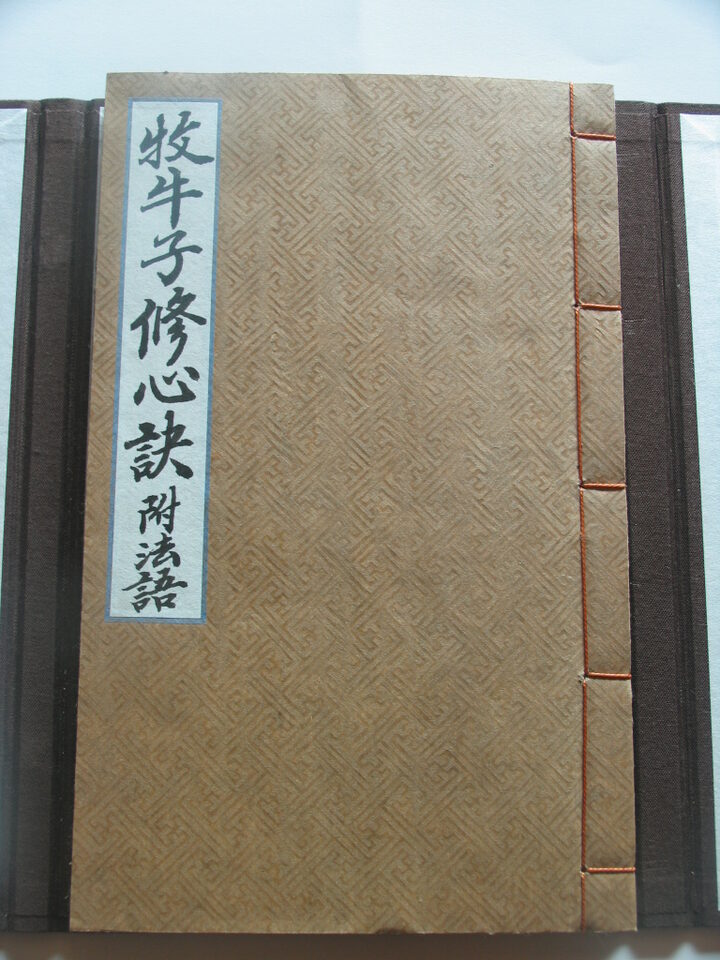 牧牛子修心訣附法語